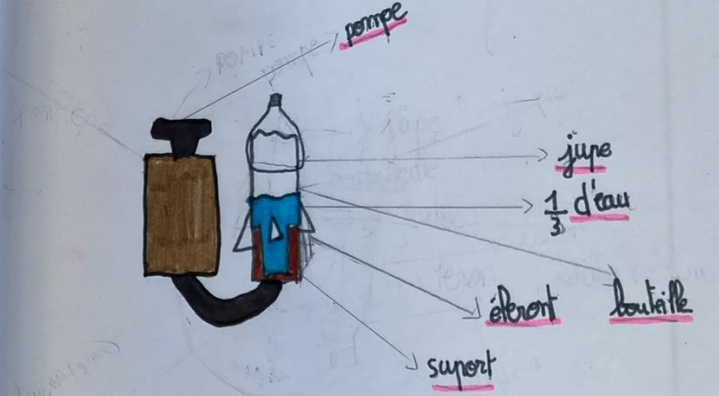 pompe
jupe
1/3 d'eau
éleront
bouteille
suport